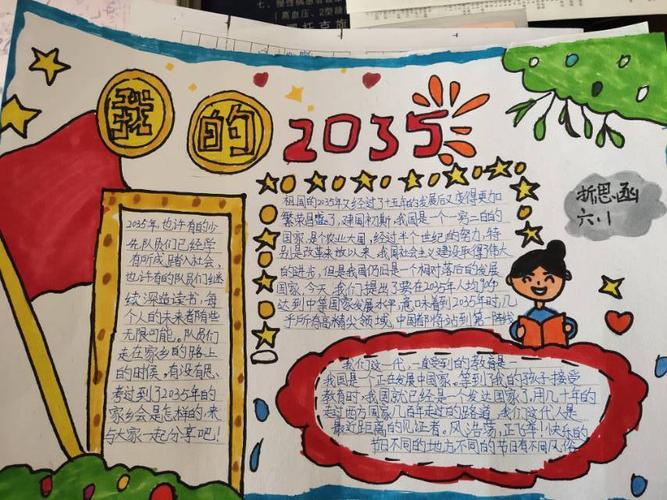 我的
2035
折思函
六.1
2035年,也许有的少
先队员们已经学
有所成,踏入社会,
也许有的队员们继
续深造读书,每
个人的未来都有些
无限可能。队员们
走在家乡的路上
的时候,有没有思
考过到了2035年的
家乡会是怎样的,来
与大家一起分享吧!
祖国的2035年又经过了十五年的发展后又变得更加
繁荣昌盛了,建国初期,我国是一个一穷二白的
国家,是个农业大国,经过半个世纪的努力,特
别是改革开放以来,我国社会主义建设取得了伟大
的进步,但是我国仍旧是一个相对落后的发展
国家,今天,我们提出了要在2035年人均
达到中等国家发展水平,意味着到2035年时,几
乎所有高精尖领域,中国都将站到第一阵线
我们这一代,一直受到的教育是一
我国是一个正在发展中国家。等到我的孩子接受
教育时,我国就已经是一个发达国家了,用几十年的
走过西方国家几百年走过的路道,我们这代人是
最近距离的见证者。风浩荡,正飞年!快乐的
节日不同的地方不同的节日有不同风俗